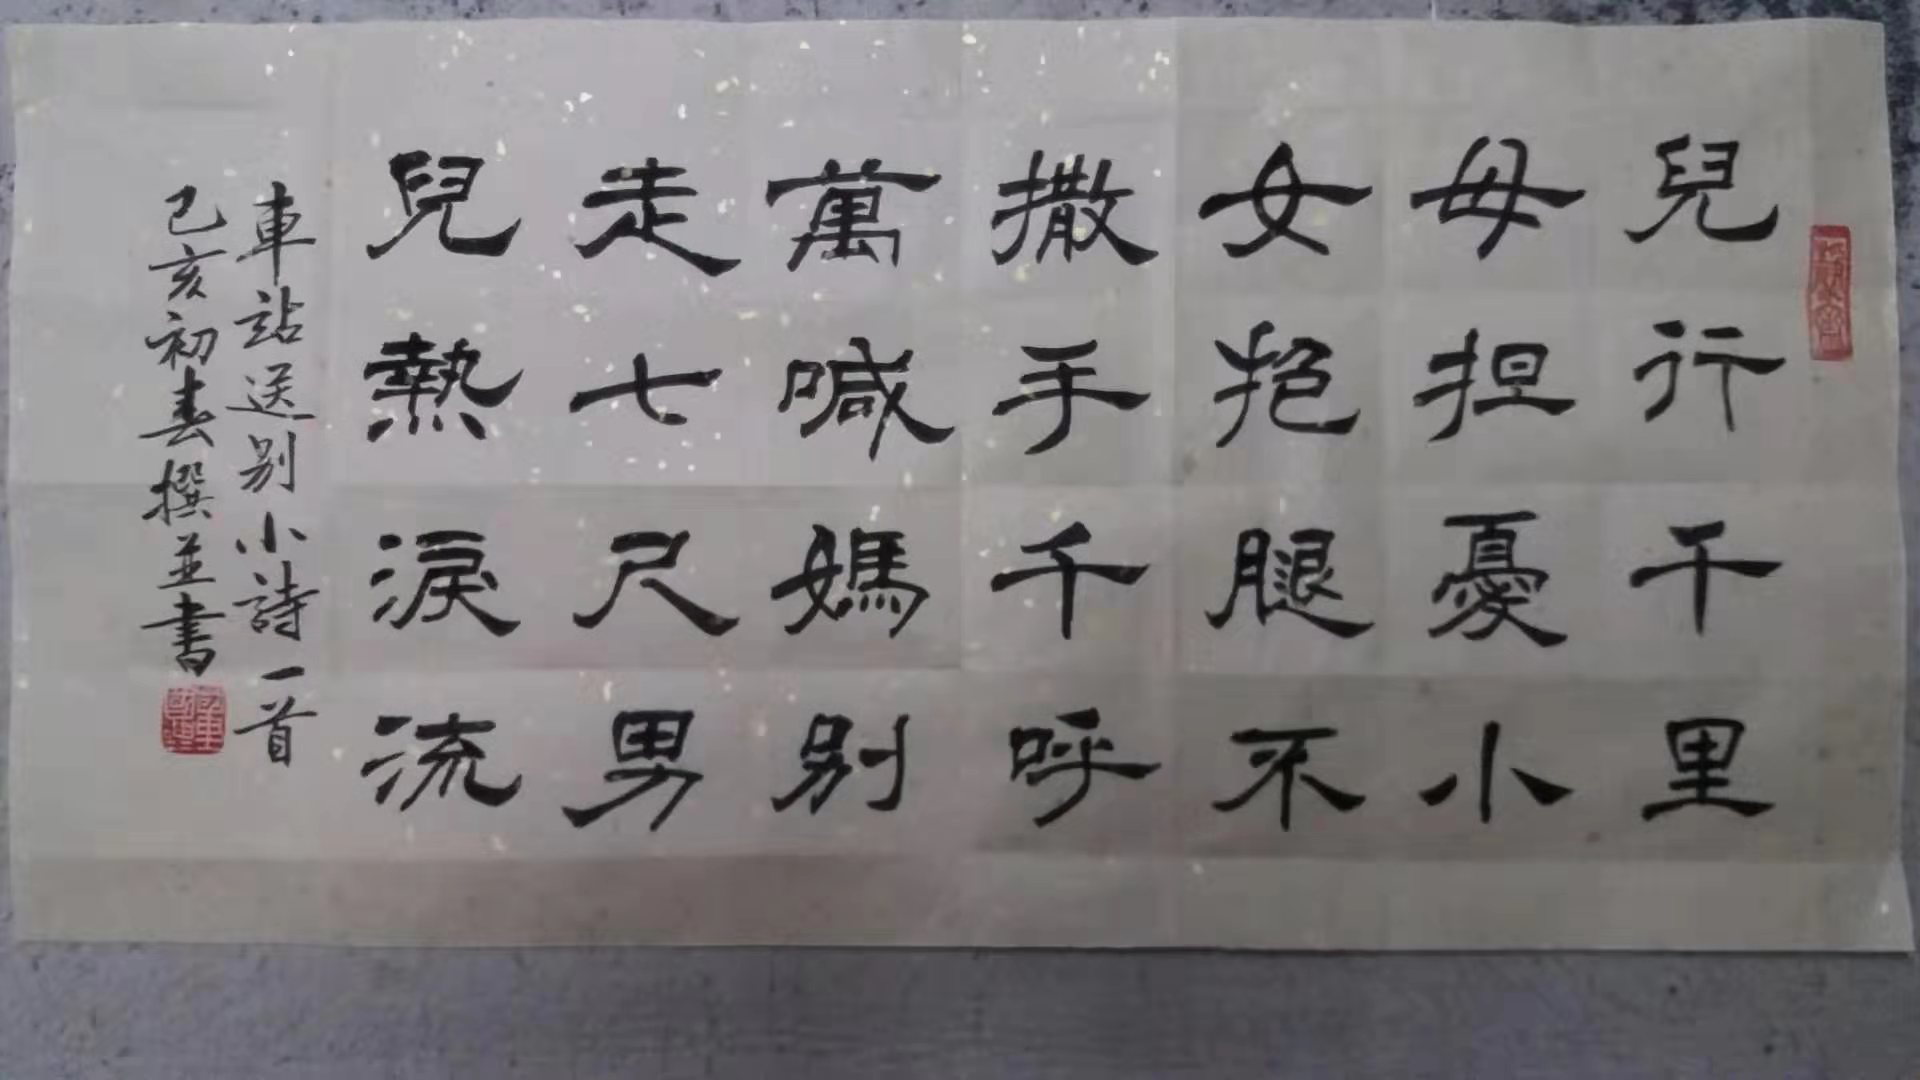 兒行千里
母担憂小
女抱腿不
撒手千呼
萬喊媽别
走七尺男
兒熱淚流
車站送别小詩一首
己亥初春撰並書